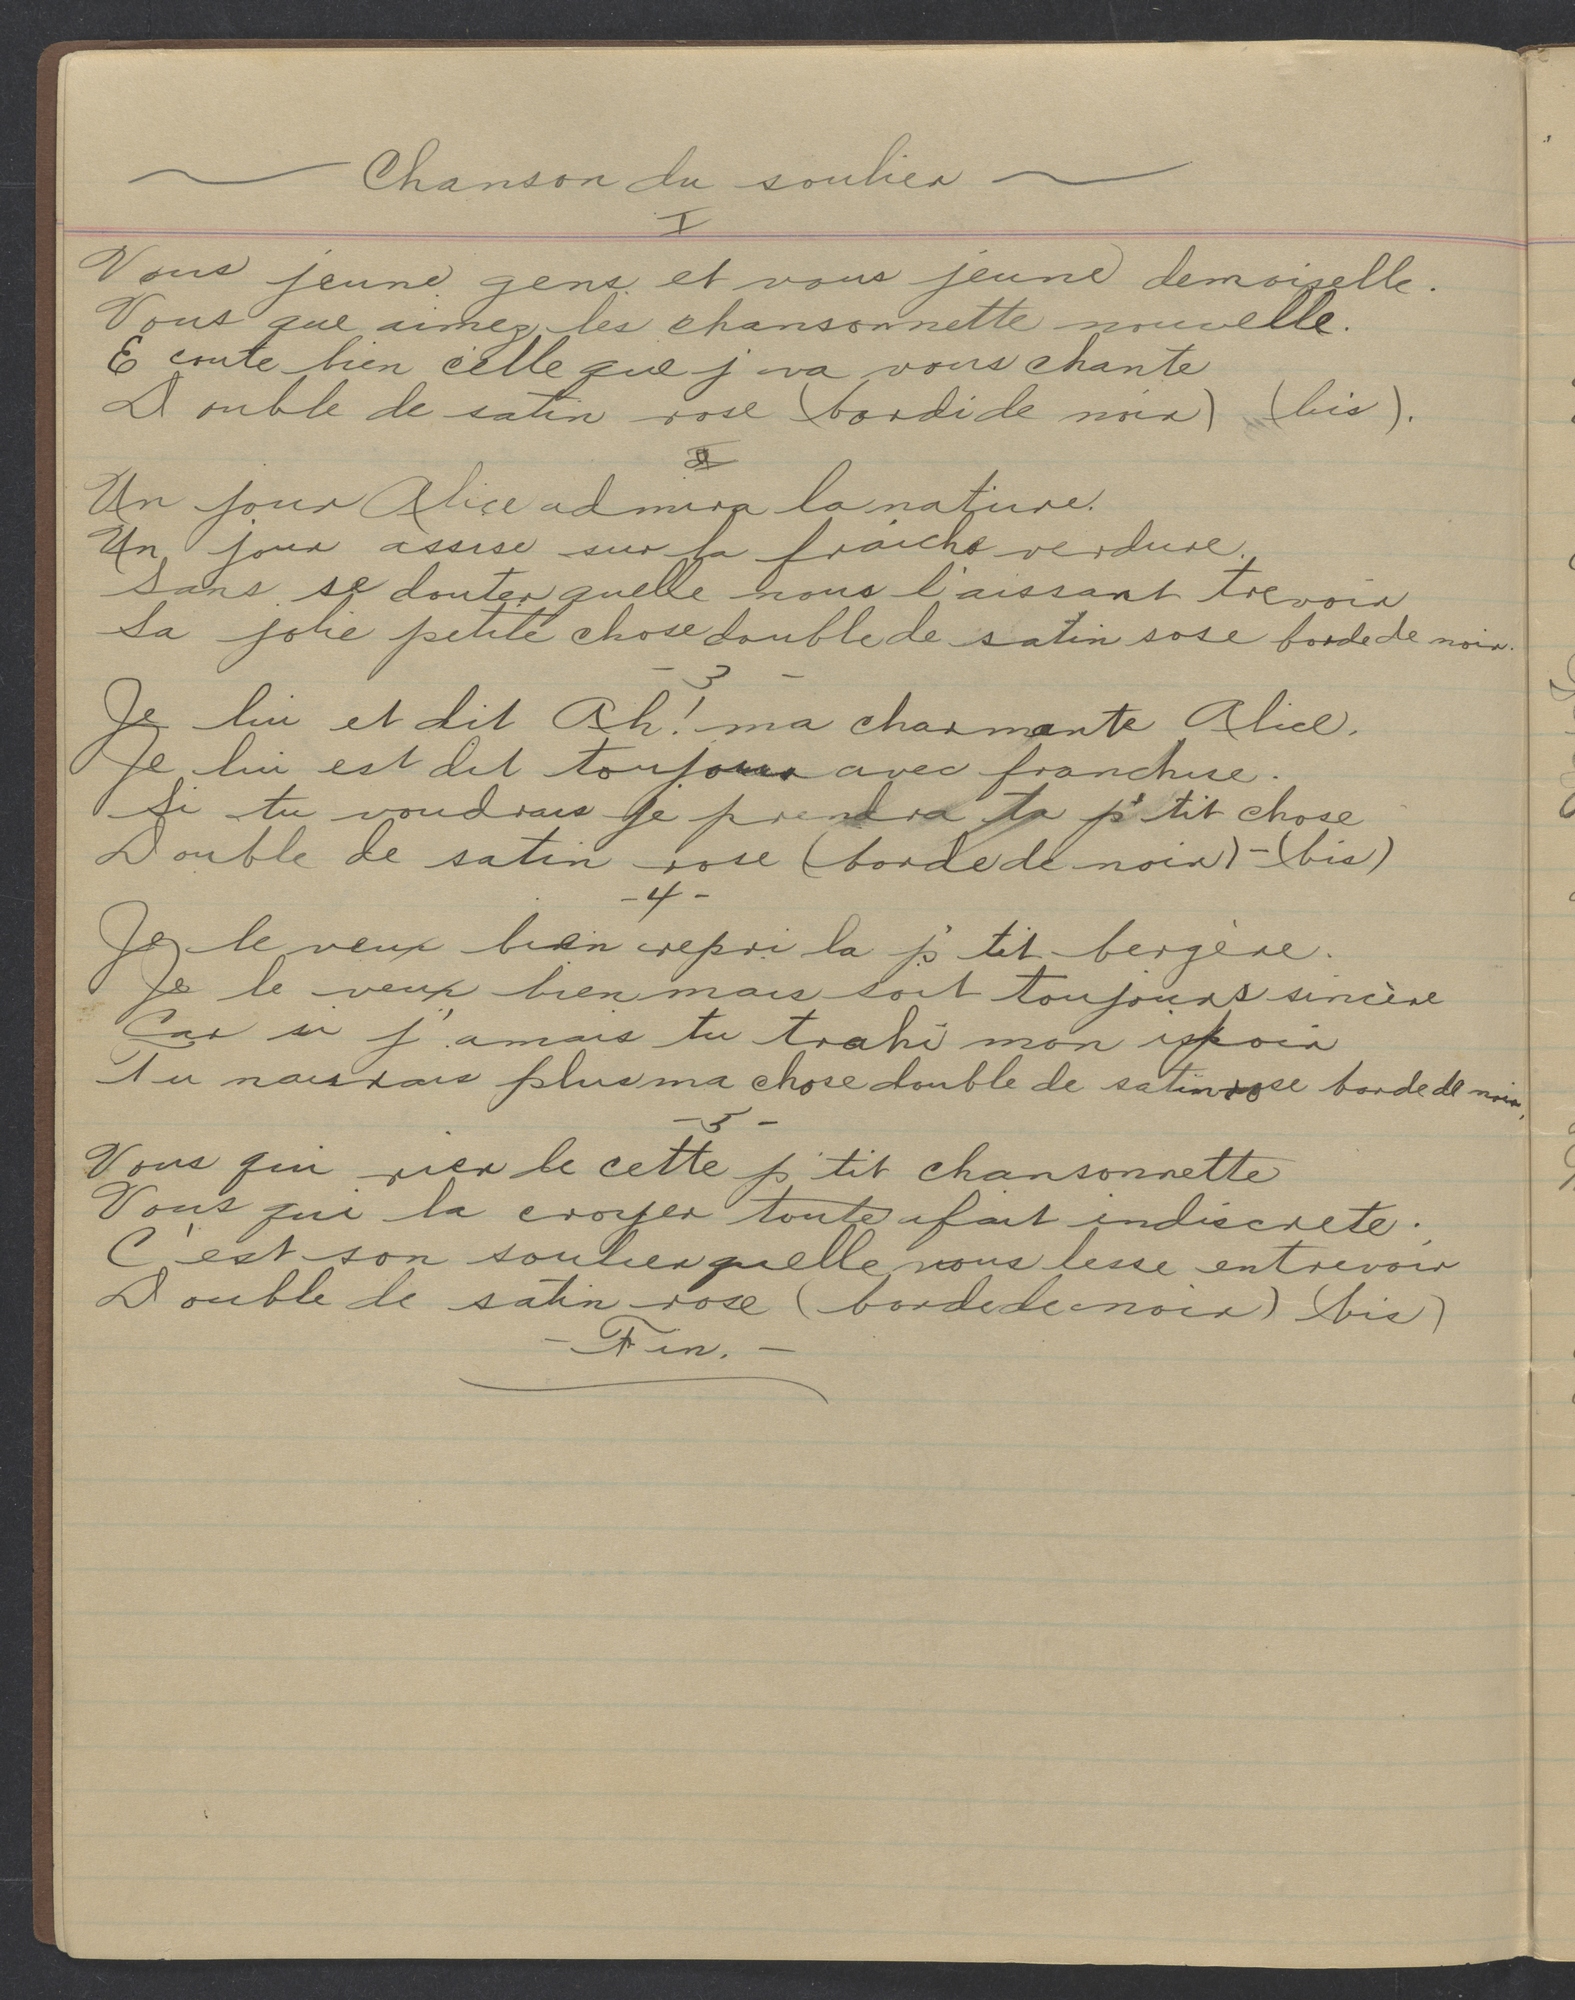 Chanson du soulier
I
Vous jeune gens et vous jeune demoiselle.
Vous que aimez les chansonnette nouvelle.
Ecoute bien celle que j va vous chante
Double de satin rose (bordi de noir) (bis).
II
Un jour Alice admira la nature.
Un jour assise sur la fraiche verdure.
Sans se douter quelle nous l'aissant trevoir
Sa jolie petite chose double de satin sose borde de noir.
- 3 -
Je lui et dit Ah! ma charmante Alice.
Je lui est dit toujours avec franchise.
Si tu voudrais je prendra ta p'tit chose
Double de satin rose (borde de noir) - (bis)
- 4 -
Je le veux bien repri la p'tit bergère.
Je le veux bien mais soit toujours sincère
Car si j'amais tu trahi mon espoir
Tu naurais plus ma chose double de satin rose borde de noir.
- 5 -
Vous qui rier de cette p'tit chansonnette
Vous qui la croyer toute afait indiscrete.
C'est son soulier quelle nous lesse entrevoir
Double de satin rose (borde de noir) (bis)
- Fin. -